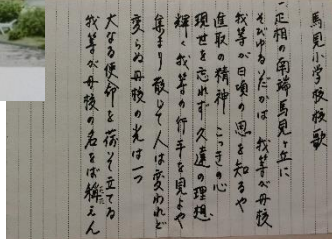 馬見小学校校歌
一、正相の南端馬見ヶ丘に
そびゆるいらかは 我等が母校
我等が日頃の思を知るや
進取の精神 こっきの心
現世を忘れず久遠の理想
輝く我等の行手を見よや
集まり散じて人は変われど
変らぬ母校の光は一つ
大なる使命を荷いて立てる
我等が母校の名をば称えん
たた